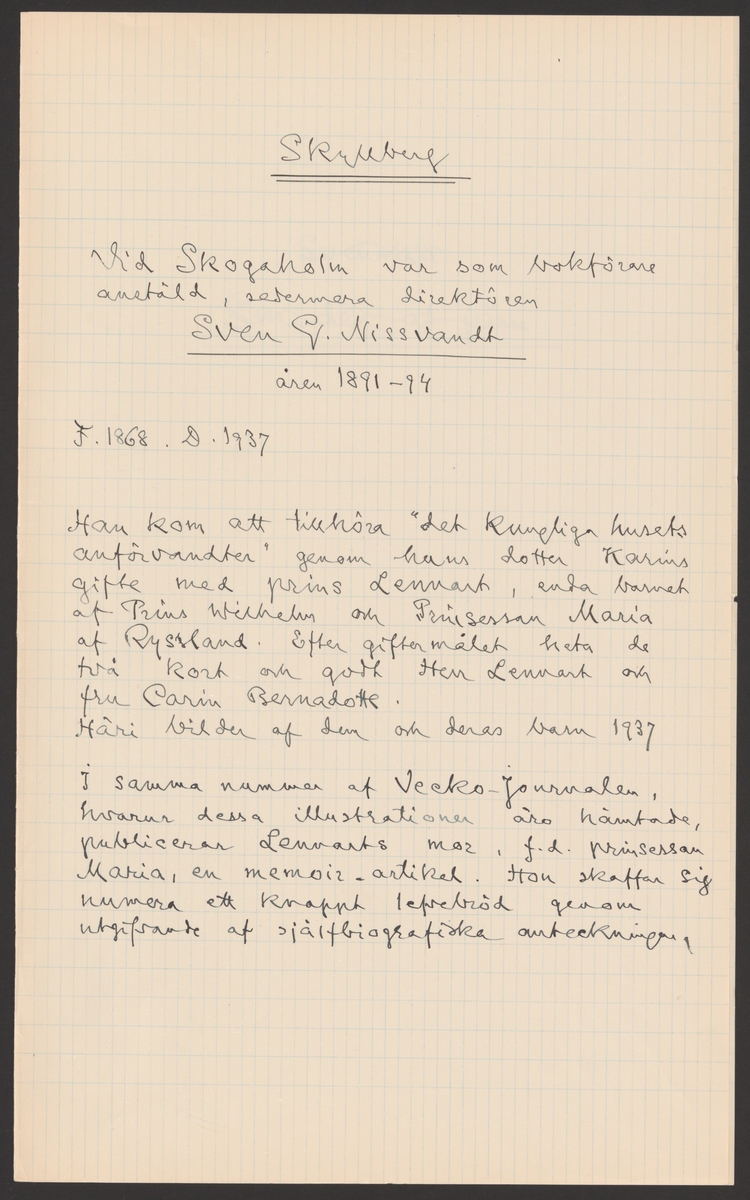 Skyllberg
Vid Skogaholm var som bokförare
anställd, sedermera direktören
Sven G. Nissvandt
åren 1891–94
F. 1868. D. 1937
Han kom att tillhöra "det kungliga husets
anförvandter" genom hans dotter Karins
gifte med prins Lennart, enda barnet
af Prins Wilhelm och Prinsessan Maria
af Ryssland. Efter giftermålet heta de
två kort och godt Herr Lennart och
fru Carin Bernadotte.
Häri bilder af dem och deras barn 1937
I samma nummer af Vecko-Journalen,
hvarur dessa illustrationer äro hämtade,
publicerar Lennarts mor, f.d. prinsessan
Maria, en memoir-artikel. Hon skaffar sig
numera ett knappt lefvebröd genom
utgifvande af självbiografiska anteckningar,